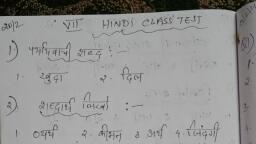 VII HINDI CLASS TEST
1) पर्यायवाची शब्द :-
1. खुदा २. दिन
२) शब्दार्थ लिखो :-
1. व्यर्थ २. कीमत 3. अर्थ 4. जिंदगी